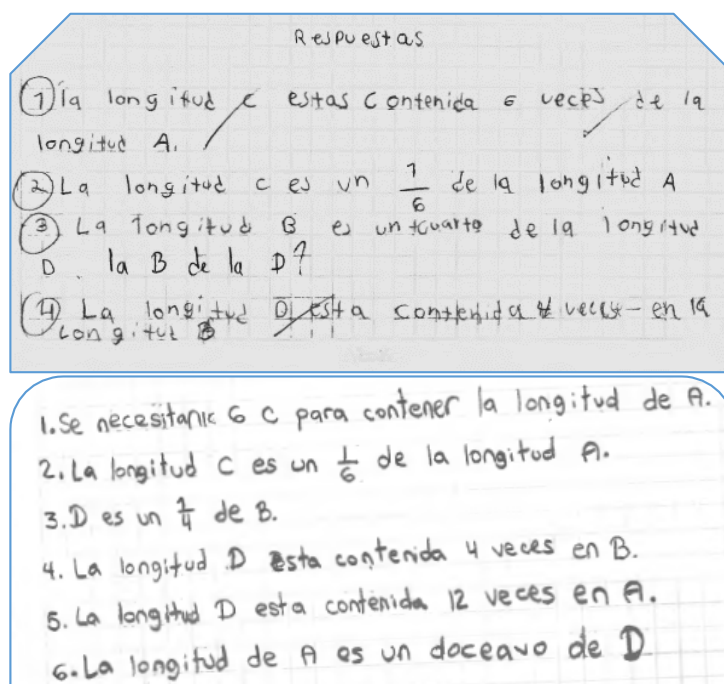 Respuestas
① la longitud c estas contenida 6 veces de la
longitud A.
② La longitud c es un 1/6 de la longitud A
③ La longitud B es un cuarto de la longitud
D. la B de la D?
④ La longitud D esta contenida 4 veces en la
Longitud B
1. Se necesitan 6 C para contener la longitud de A.
2. La longitud C es un 1/6 de la longitud A.
3. D es un 1/4 de B.
4. La longitud D esta contenida 4 veces en B.
5. La longitud D esta contenida 12 veces en A.
6. La longitud de A es un doceavo de D